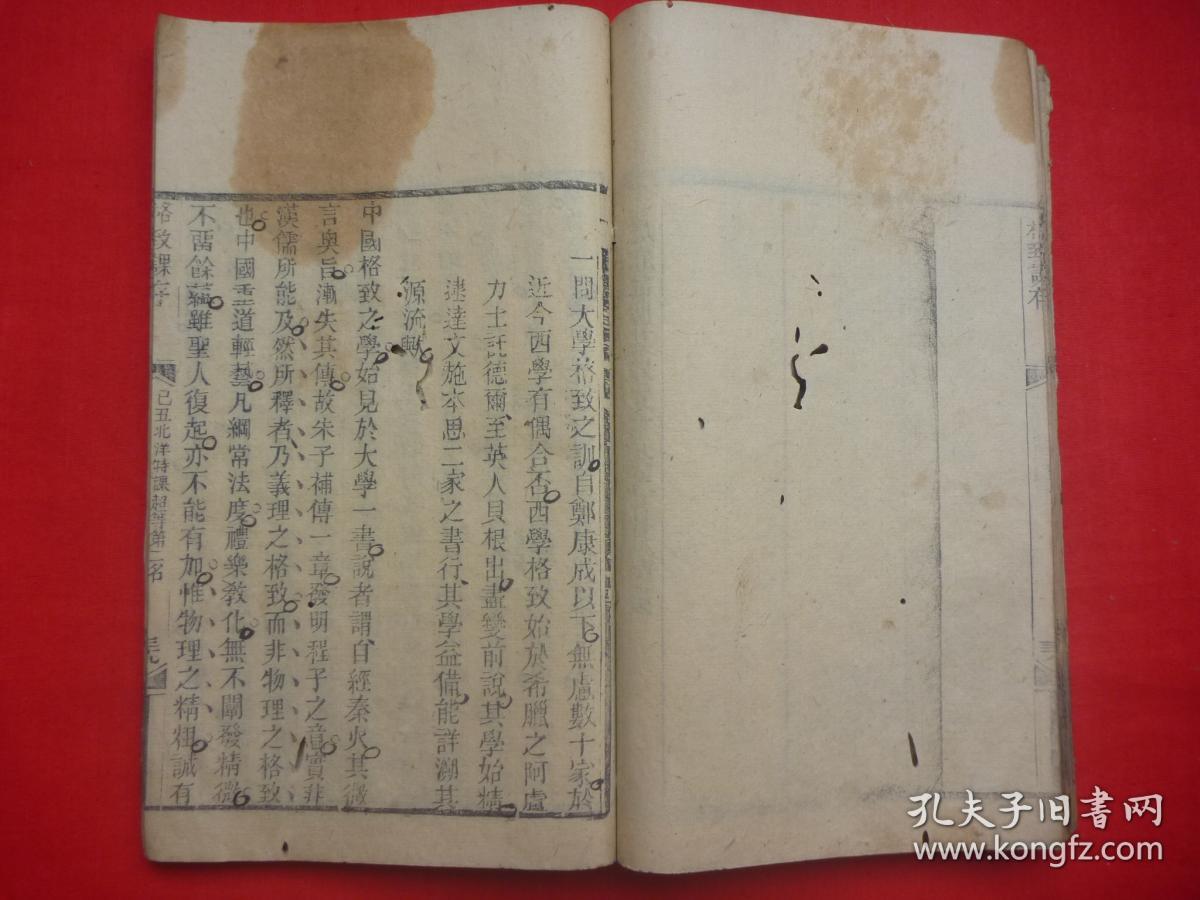 格致課存
一問大學格致之訓自鄭康成以下無慮數十家於
近今西學有偶合否西學格致始於希臘之阿盧
力士託德爾至英人貝根出盡變前說其學始精
逮達文施本思二家之書行其學益備能詳溯其
源流歟
中國格致之學始見於大學一書說者謂自經秦火其微
言奧旨漸失其傳故朱子補傳一章發明程子之意實非
漢儒所能及然所釋者乃義理之格致而非物理之格致
也中國重道輕藝凡綱常法度禮樂教化無不闡發精微
不留餘蘊雖聖人復起亦不能有加惟物理之精粗誠有
格致課存
己丑北洋特課超等第二名
孔夫子旧书网
www.kongfz.com